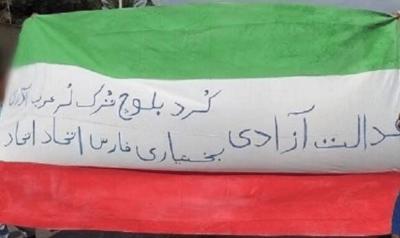 کُرد بلوچ تُرک لُر عرب
عدالت آزادی
بختیاری فارس اتحاد اتحاد